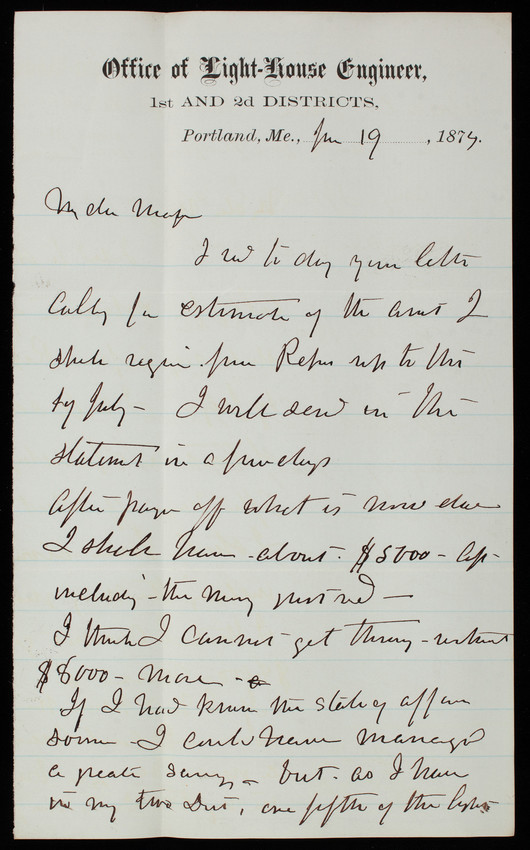 Office of Light-House Engineer,
1st AND 2d DISTRICTS,
Portland, Me., Jan 19, 1874.
My dear Major
I recd to day your letter
calling for estimate of the amt I
shall require from Repair up to the
1st July - I will send in the
statement in a few days
After paying off what is now due
I shall have about $5000 -
including the money just recd -
I think I cannot get through without
$8000 - more -
If I had known the state of affairs
sooner I could have managed
a greater saving - but as I have
in my two Dists, one fifth of the lights